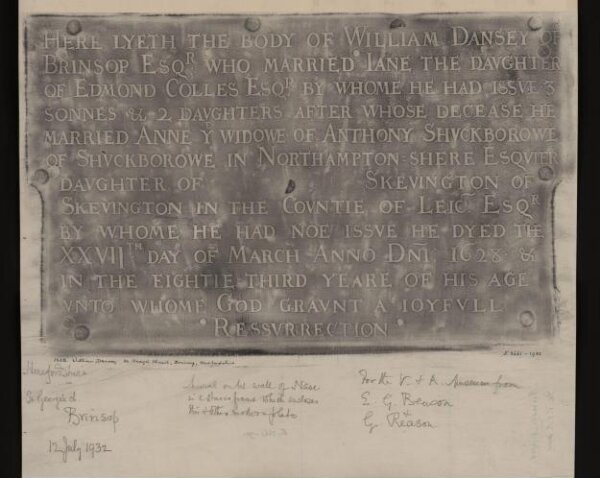 HERE LYETH THE BODY OF WILLIAM DANSEY OF
BRINSOP ESQR WHO MARRIED IANE THE DAVGHTER
OF EDMOND COLLES ESQR BY WHOME HE HAD ISSVE 3
SONNES & 2 DAVGHTERS AFTER WHOSE DECEASE HE
MARRIED ANNE Y WIDOWE OF ANTHONY SHVCKBOROWE
OF SHVCKBOROWE IN NORTHAMPTON SHERE ESQVIER
DAVGHTER OF SKEVINGTON OF
SKEVINGTON IN THE COVNTIE OF LEIC ESQR
BY WHOME HE HAD NOE ISSVE HE DYED THE
XXVIITH DAY OF MARCH ANNO DNI 1628 &
IN THE EIGHTIE THIRD YEARE OF HIS AGE
VNTO WHOME GOD GRAVNT A IOYFVLL
RESSVRRECTION
1628 William Dansey St George's Church, Brinsop, Herefordshire
Herefordshire
St George's
Brinsop
12 July 1932
on the wall of Nave
in a stone frame which encloses
this & other modern plate
For the V. & A. Museum from
E. G. Benson
+
G Reason